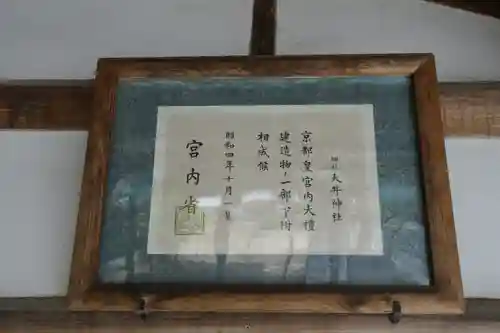 郷社大井神社
京都皇宮内大禮
建造物ノ一部下附
相成候
昭和四年十月一日
宮内省